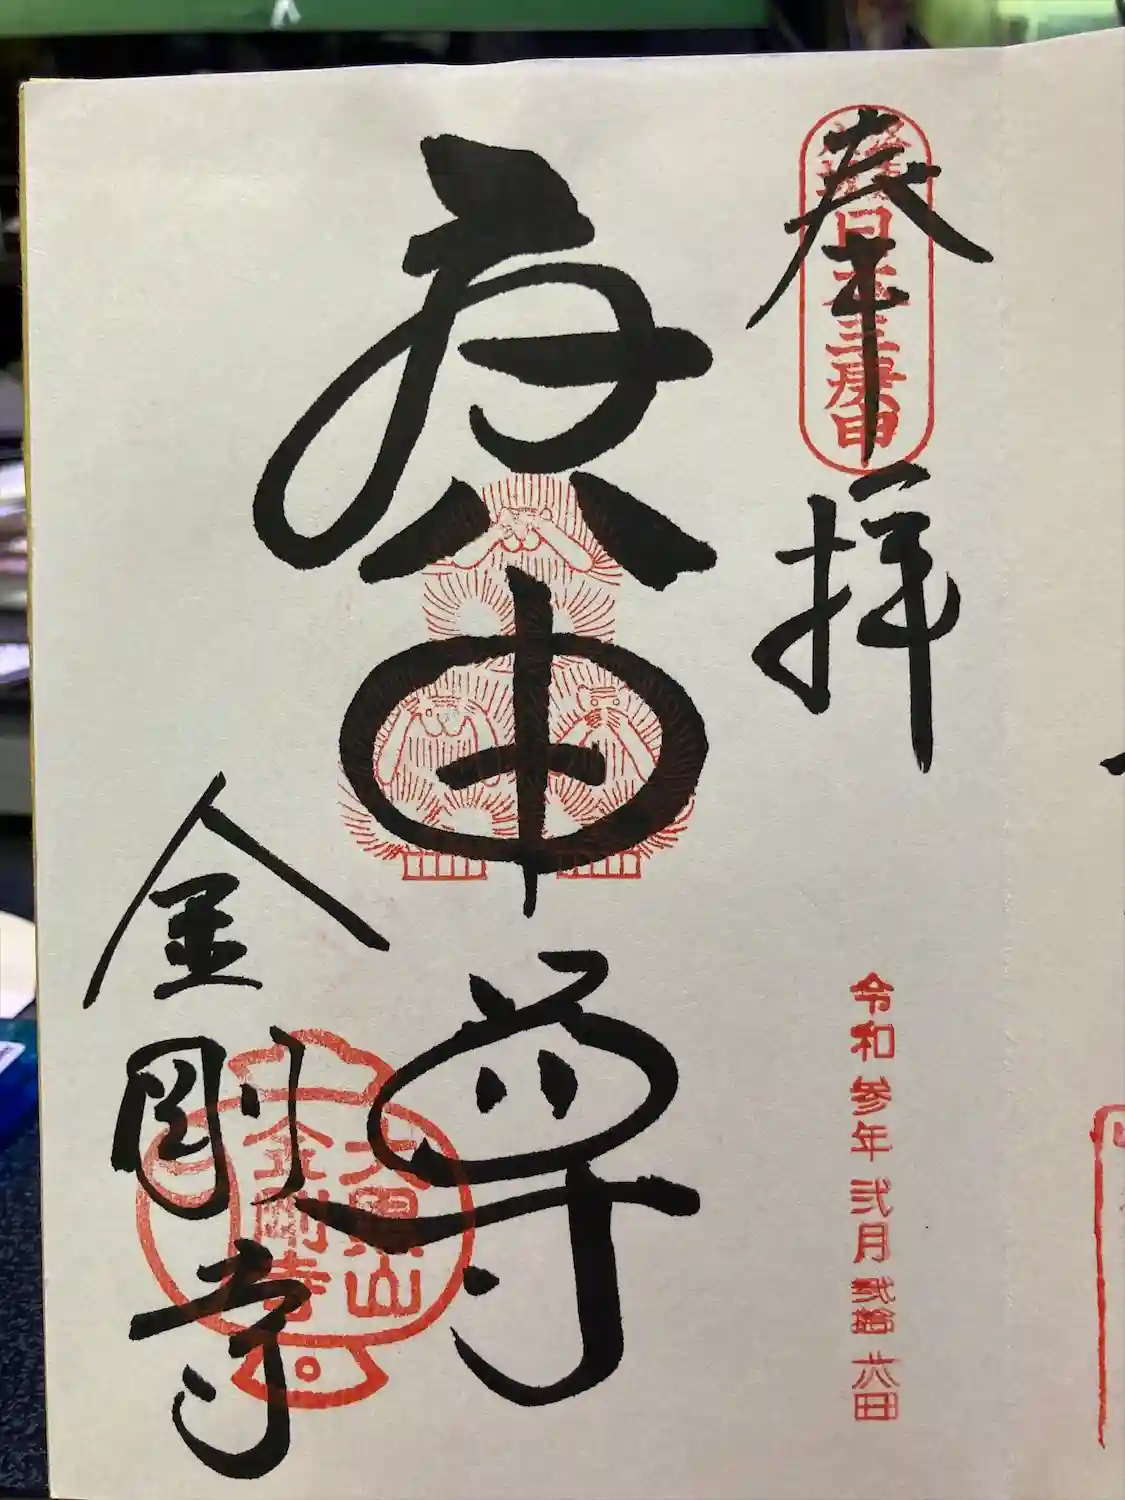 奉拝
日本三庚申
庚申尊
令和参年弐月弐拾六日
金剛寺
大黒山
金剛寺